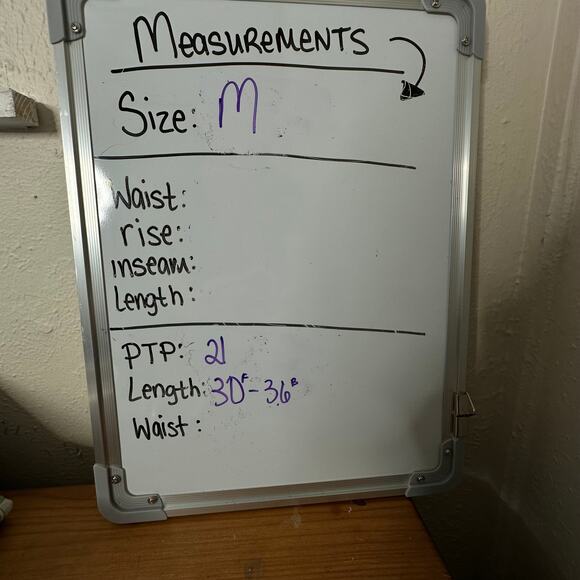 MeasuREMENTS
Size: M
Waist:
rise:
inseam:
Length:
PTP: 21
Length: 30F - 36B
Waist: